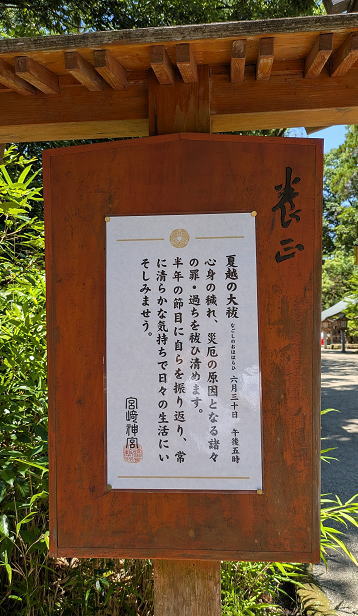 養正
夏越の大祓 なごしのおおはらひ 六月三十日 午後五時
心身の穢れ、災厄の原因となる諸々
の罪・過ちを祓ひ清めます。
半年の節目に自らを振り返り、常
に清らかな気持ちで日々の生活にい
そしみませう。
宮﨑神宮